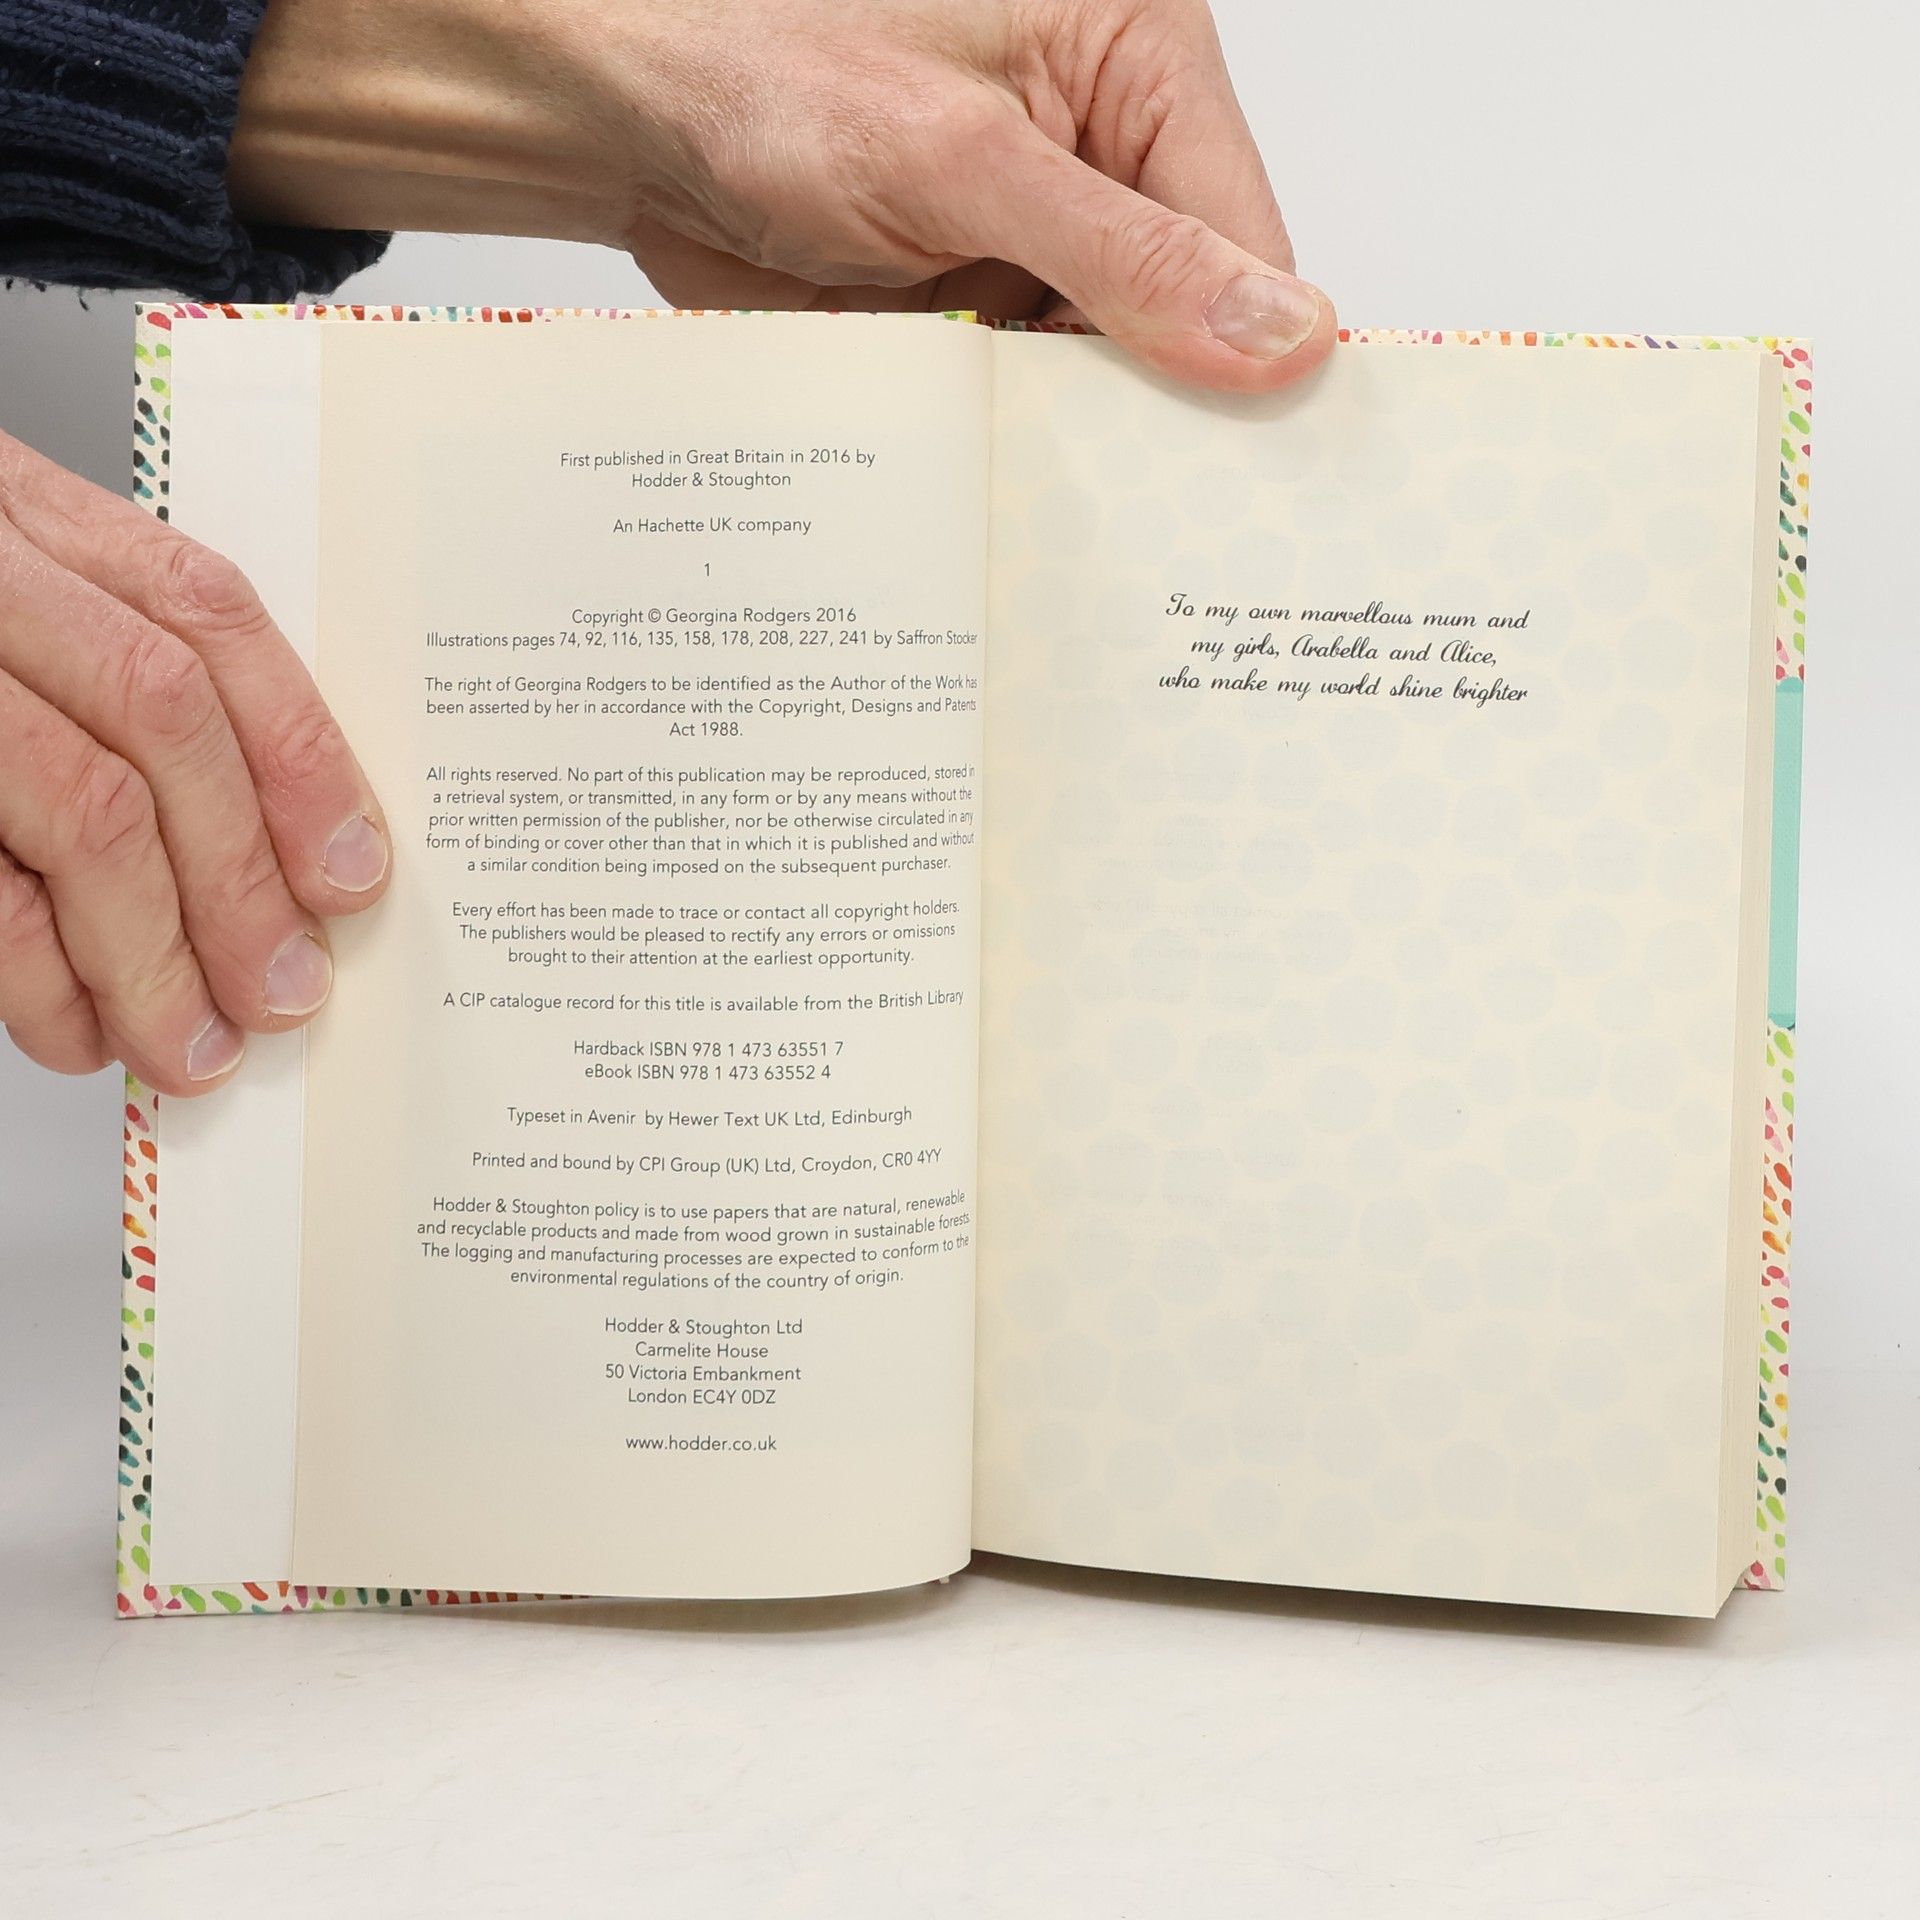 First published in Great Britain in 2016 by
Hodder & Stoughton
An Hachette UK company
1
Copyright © Georgina Rodgers 2016
Illustrations pages 74, 92, 116, 135, 158, 178, 208, 227, 241 by Saffron Stocker
The right of Georgina Rodgers to be identified as the Author of the Work has
been asserted by her in accordance with the Copyright, Designs and Patents
Act 1988.
All rights reserved. No part of this publication may be reproduced, stored in
a retrieval system, or transmitted, in any form or by any means without the
prior written permission of the publisher, nor be otherwise circulated in any
form of binding or cover other than that in which it is published and without
a similar condition being imposed on the subsequent purchaser.
Every effort has been made to trace or contact all copyright holders.
The publishers would be pleased to rectify any errors or omissions
brought to their attention at the earliest opportunity.
A CIP catalogue record for this title is available from the British Library
Hardback ISBN 978 1 473 63551 7
eBook ISBN 978 1 473 63552 4
Typeset in Avenir by Hewer Text UK Ltd, Edinburgh
Printed and bound by CPI Group (UK) Ltd, Croydon, CR0 4YY
Hodder & Stoughton policy is to use papers that are natural, renewable
and recyclable products and made from wood grown in sustainable forests.
The logging and manufacturing processes are expected to conform to the
environmental regulations of the country of origin.
Hodder & Stoughton Ltd
Carmelite House
50 Victoria Embankment
London EC4Y 0DZ
www.hodder.co.uk
To my own marvellous mum and
my girls, Arabella and Alice,
who make my world shine brighter